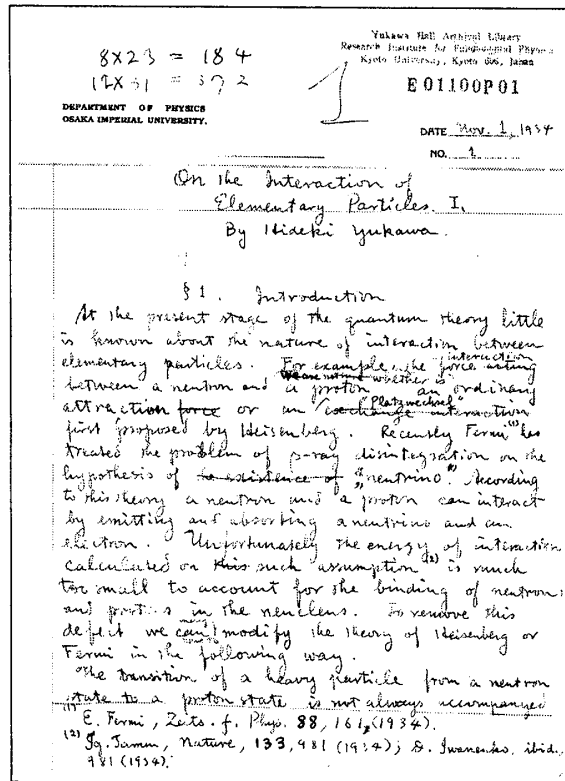 8×23 = 184
12×31 = 372
1
Yukawa Hall Archival Library
Research Institute for Fundamental Physics
Kyoto University, Kyoto 606, Japan
E01100P01
DEPARTMENT OF PHYSICS
OSAKA IMPERIAL UNIVERSITY.
DATE Nov. 1, 1934
NO. 1
On the Interaction of
Elementary Particles. I.
By Hideki Yukawa.
§ 1. Introduction
At the present stage of the quantum theory little
is known about the nature of interaction between
elementary particles. For example, the force acting
interaction
between a neutron and a proton an ordinary
whether is
attraction force or an exchange interaction
"Platzwechsel"
first proposed by Heisenberg. Recently Fermi (1) has
treated the problem of β-ray disintegration on the
hypothesis of the existence of "neutrino". According
to this theory a neutron and a proton can interact
by emitting and absorbing a neutrino and an
electron. Unfortunately the energy of interaction
calculated on this such assumption (2) is much
too small to account for the binding of neutrons
and protons in the neucleus. To remove this
defect we can modify the theory of Heisenberg or
Fermi in the following way.
The transition of a heavy particle from a neutron
state to a proton state is not always accompanied
(1) E. Fermi, Zeits. f. Phys. 88, 161, (1934).
(2) Ig. Tamm, Nature, 133, 981 (1934); D. Iwanenko, ibid.,
981 (1934).